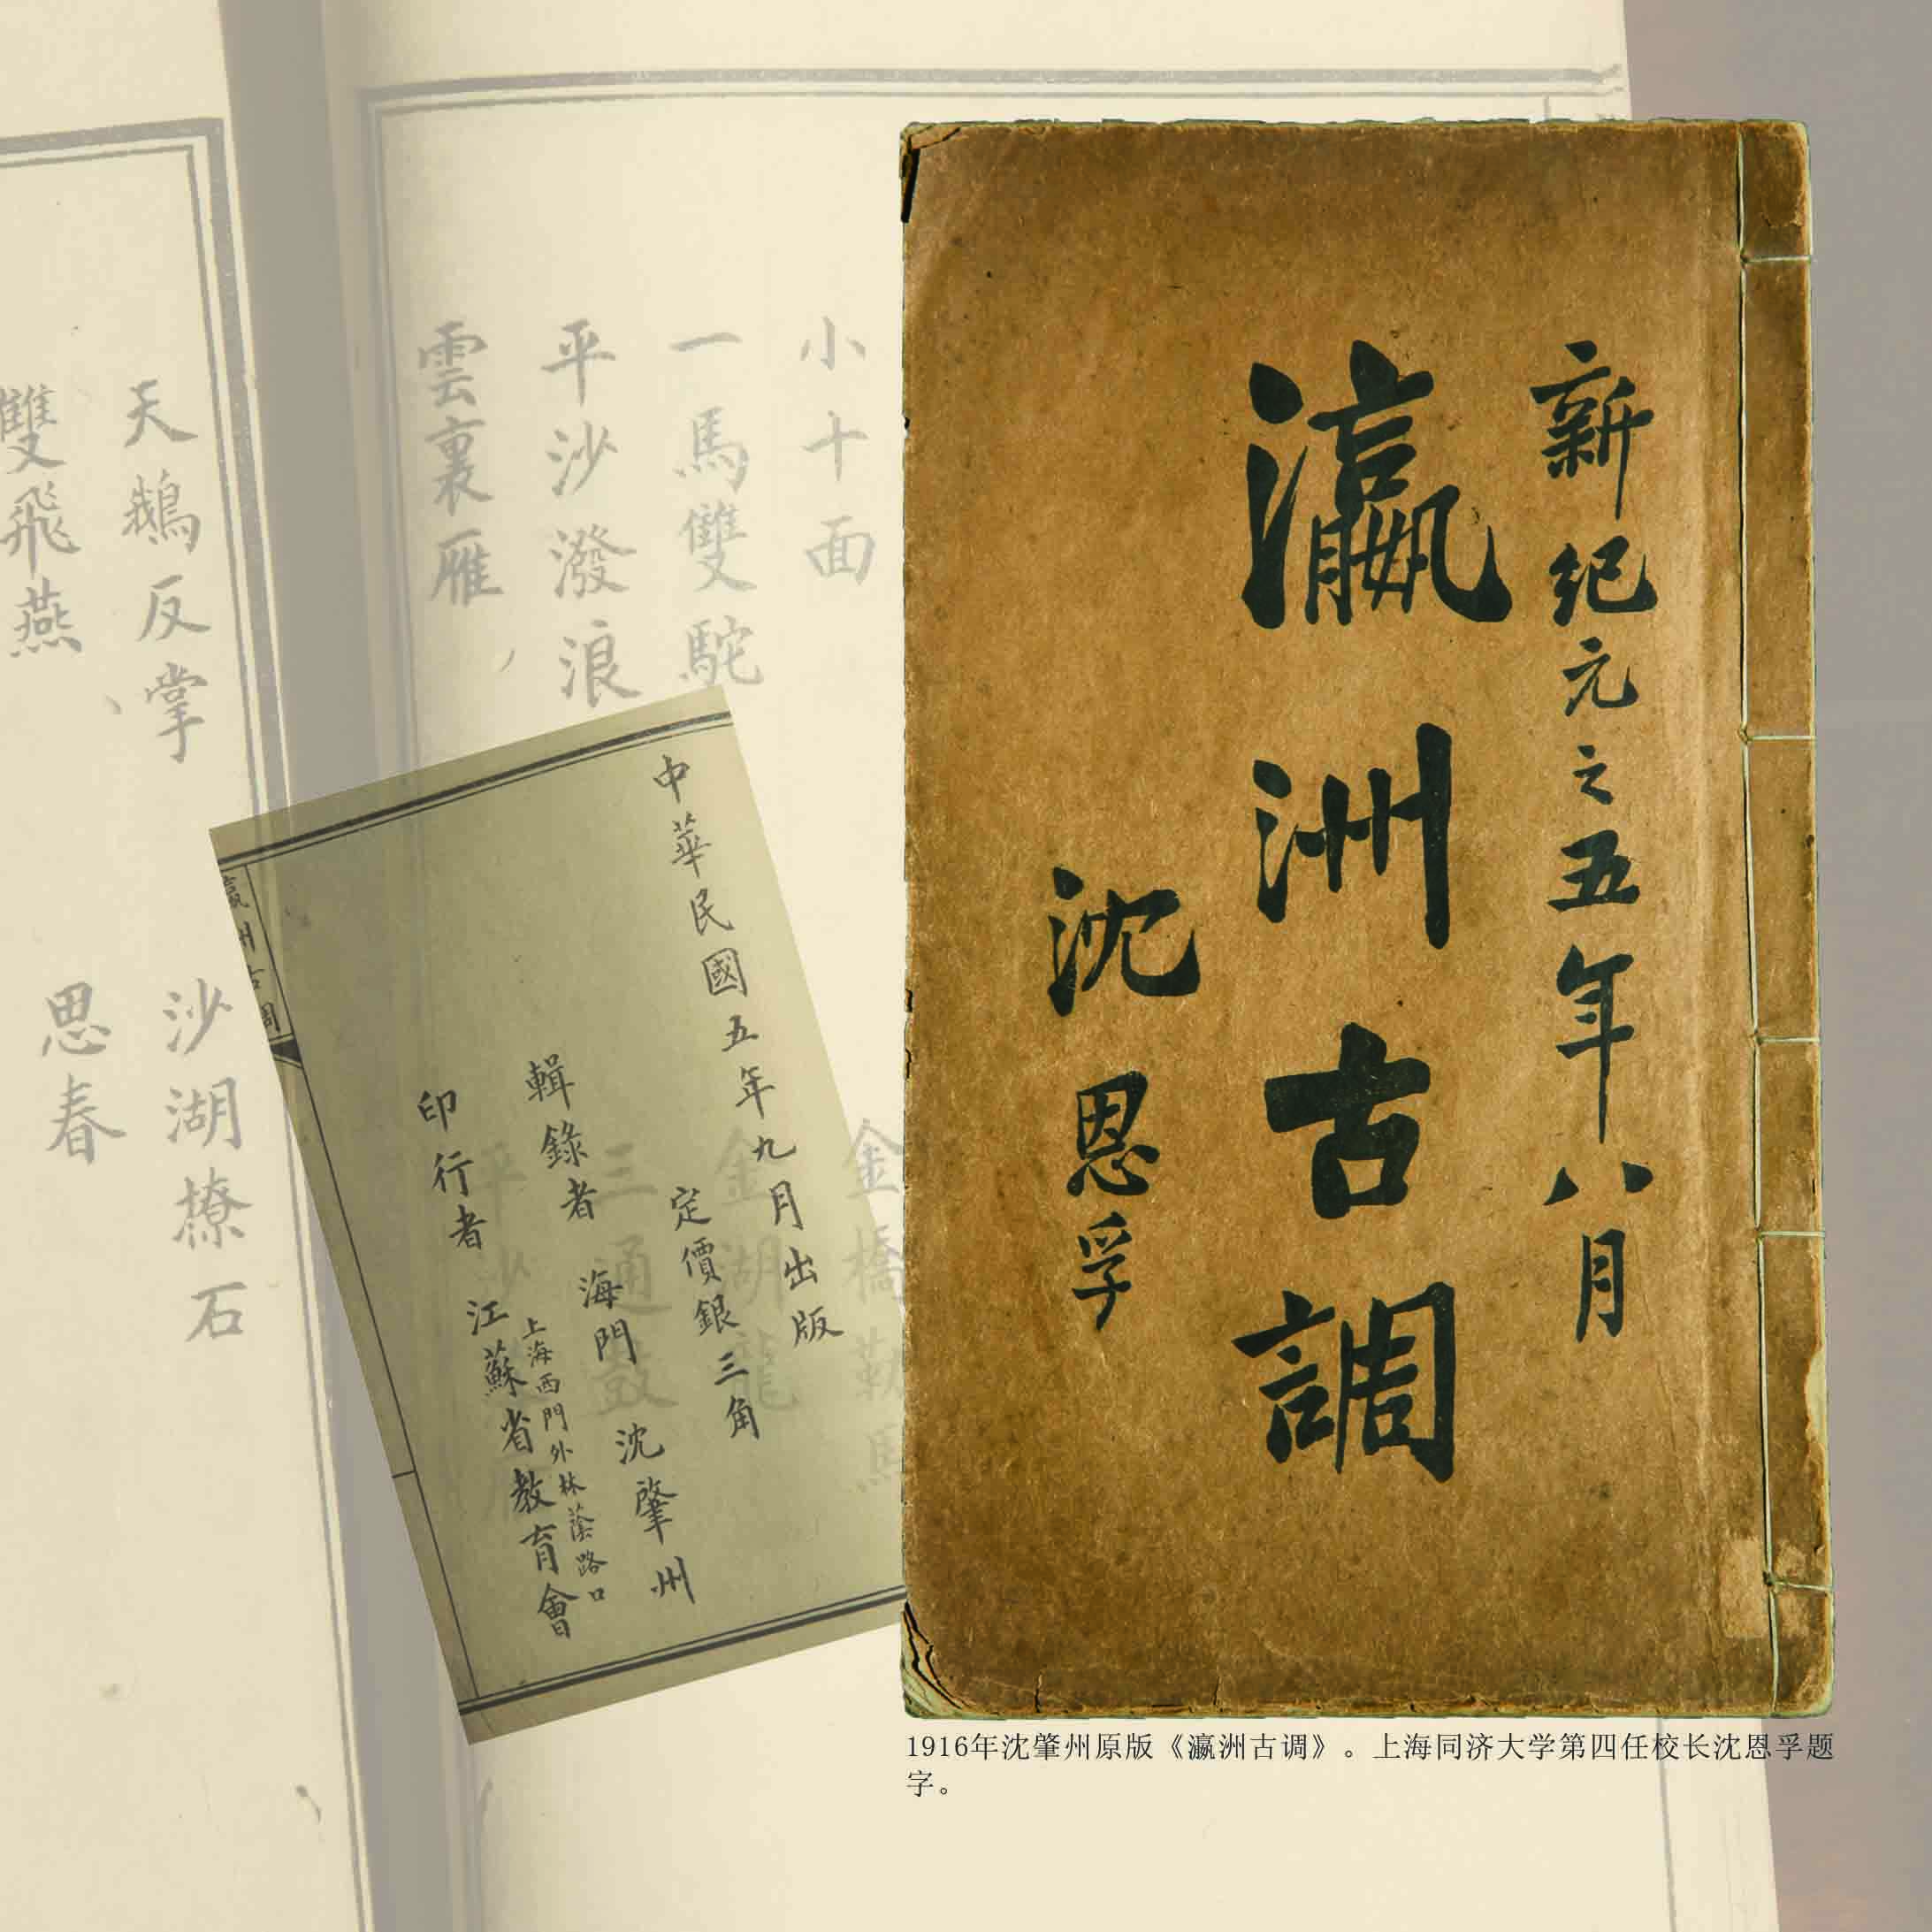 新紀元之五年八月
瀛洲古調
沈恩孚
中華民國五年九月出版
定價銀三角
輯錄者 海門 沈肇州
上海西門外林蔭路口
印行者 江蘇省教育會
瀛州古調
小十面
一馬雙駝
平沙潑浪
雲裏雁
金橋勒馬
金湖龍
三通鼓
平沙
天鵝反掌
沙湖撩石
雙飛燕
思春
1916年沈肇州原版《瀛洲古调》。上海同济大学第四任校长沈恩孚题
字。